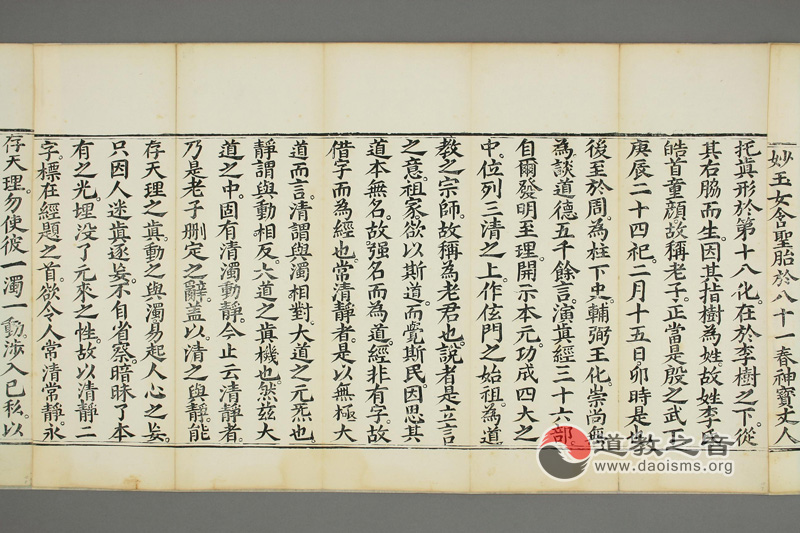 妙玉女含聖胎於八十一春神寶丈人
托眞形於第十八化在於李樹之下從
其右脇而生因其指樹為姓故姓李氏
皓首童顔故稱老子正當是殷之武丁
庚辰二十四祀二月十五日卯時是也
後至於周為柱下史輔弼王化崇尚無
為談道德五千餘言演眞經三十六部
自爾發明至理開示本元功成四大之
中位列三清之上作玄門之始祖為道
教之宗師故稱為老君也說者是立言
之意祖家欲以斯道而覺斯民因思其
道本無名故强名而為道經非有字故
借字而為經也常清靜者是以無極大
道而言清謂與濁相對大道之元炁也
靜謂與動相反大道之眞機也然兹大
道之中固有清濁動靜今止云清靜者
乃是老子刪定之辭盖以清之與靜能
存天理之眞動之與濁易起人心之妄
只因人迷眞逐妄不自省察暗昧了本
有之光埋没了元來之性故以清靜二
字標在經題之首欲令人常清常靜永
存天理勿使彼一濁一動涉入己私以
道教之音
www.daoisms.org